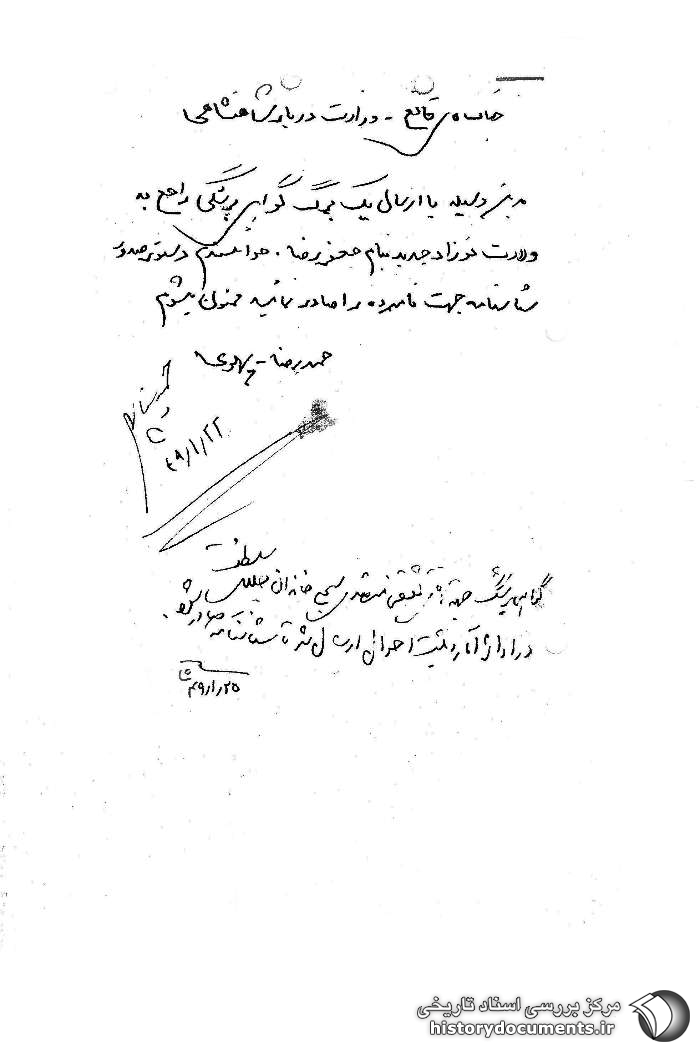 جناب آقای قانع - وزارت دربار شاهنشاهی
بدین وسیله با ارسال یک برگ گواهی پزشکی راجع به
ولادت نوزاد جدید بنام جعفررضا، خواهشمندم دستور صدور
شناسنامه جهت نامبرده را صادر نمائید ممنون میشوم
حمیدرضا پهلوی
۴۹/۱/۲۲
گواهی پزشک جهة آقای
در اداره آمار و ثبت احوال ارسال شد تا شناسنامه صادر شود.
۴۹/۱/۲۵
مرکز بررسی اسناد تاریخی
historydocuments.ir